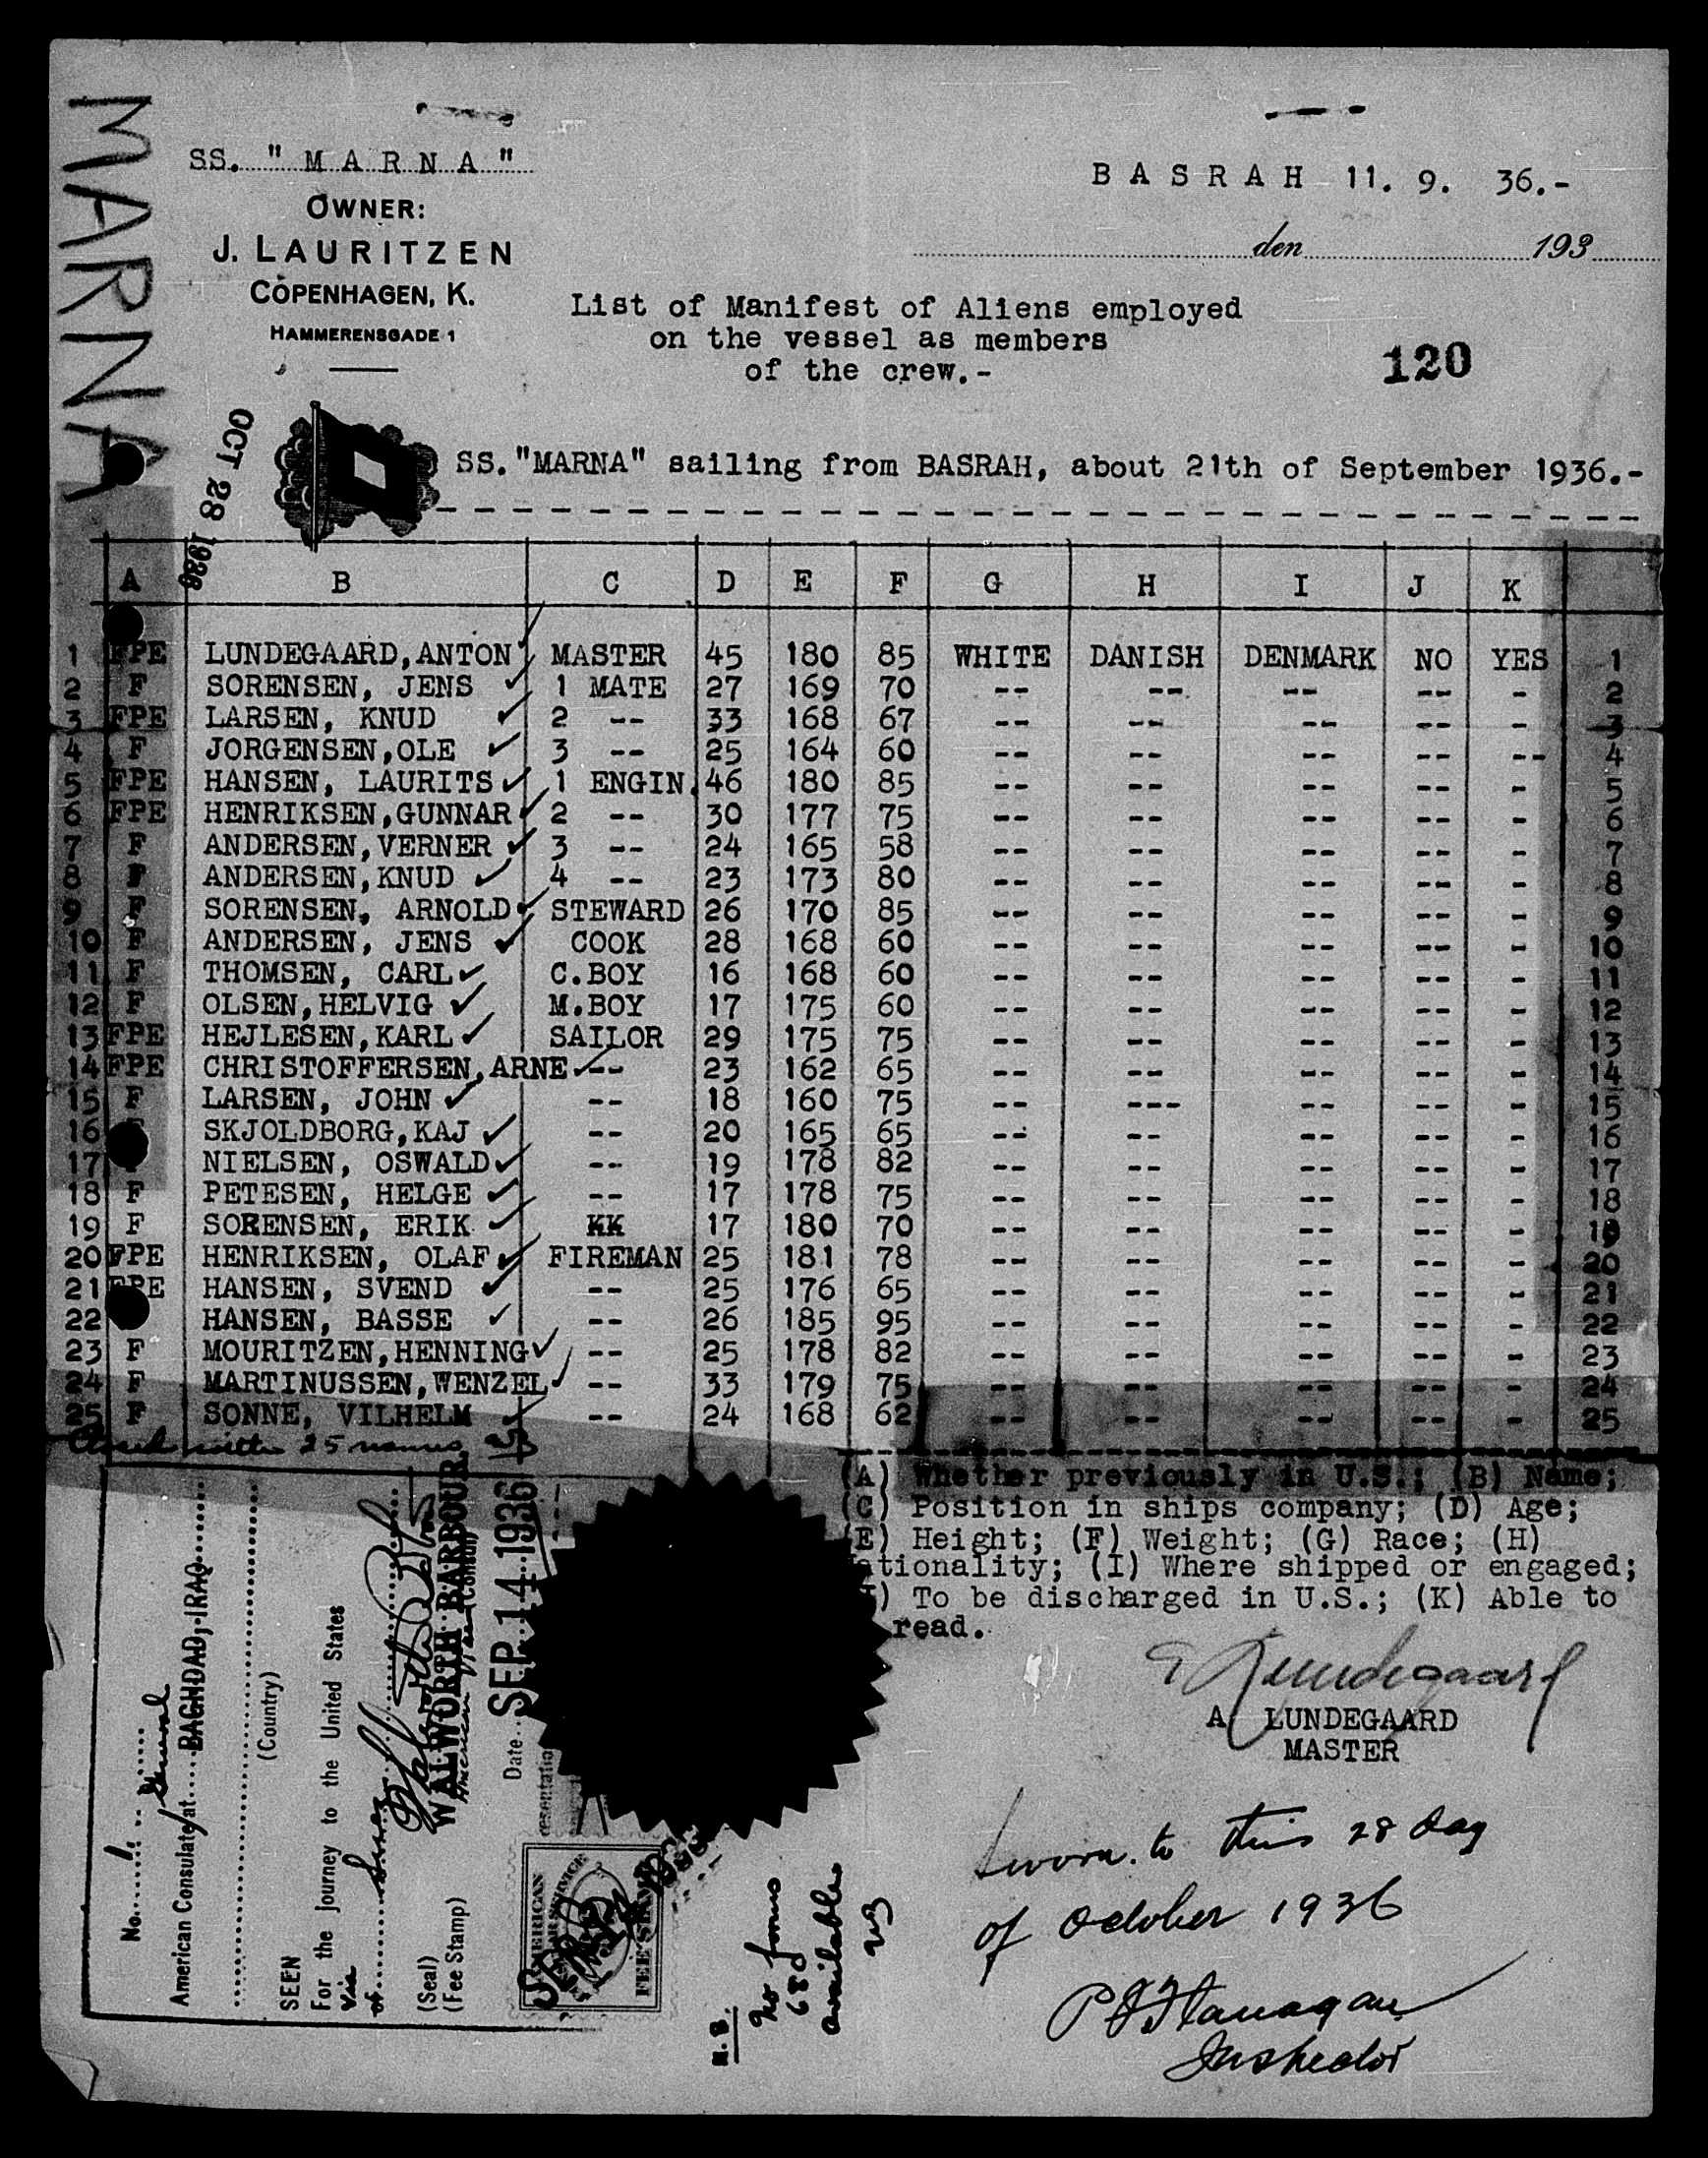 MARNA
SS. "MARNA"
OWNER:
J. LAURITZEN
COPENHAGEN, K.
HAMMERENSGADE 1
BASRAH 11. 9. 36.-
den 193
List of Manifest of Aliens employed
on the vessel as members
of the crew.-
120
OCT 28 1936
SS."MARNA" sailing from BASRAH, about 21th of September 1936.-
A B C D E F G H I J K
1 FPE LUNDEGAARD,ANTON ✓ MASTER 45 180 85 WHITE DANISH DENMARK NO YES 1
2 F SORENSEN, JENS ✓ 1 MATE 27 169 70 -- -- -- -- - 2
3 FPE LARSEN, KNUD ✓ 2 -- 33 168 67 -- -- -- -- - 3
4 F JORGENSEN,OLE ✓ 3 -- 25 164 60 -- -- -- -- -- 4
5 FPE HANSEN, LAURITS ✓ 1 ENGIN. 46 180 85 -- -- -- -- - 5
6 FPE HENRIKSEN,GUNNAR ✓ 2 -- 30 177 75 -- -- -- -- - 6
7 F ANDERSEN,VERNER ✓ 3 -- 24 165 58 -- -- -- -- - 7
8 F ANDERSEN,KNUD ✓ 4 -- 23 173 80 -- -- -- -- - 8
9 F SORENSEN, ARNOLD ✓ STEWARD 26 170 85 -- -- -- -- - 9
10 F ANDERSEN, JENS ✓ COOK 28 168 60 -- -- -- -- - 10
11 F THOMSEN, CARL ✓ C.BOY 16 168 60 -- -- -- -- - 11
12 F OLSEN,HELVIG ✓ M.BOY 17 175 60 -- -- -- -- - 12
13 FPE HEJLESEN,KARL ✓ SAILOR 29 175 75 -- -- -- -- - 13
14 FPE CHRISTOFFERSEN,ARNE ✓ -- 23 162 65 -- -- -- -- - 14
15 F LARSEN, JOHN ✓ -- 18 160 75 -- --- -- -- - 15
16 SKJOLDBORG,KAJ ✓ -- 20 165 65 -- -- -- -- - 16
17 NIELSEN, OSWALD ✓ -- 19 178 82 -- -- -- -- - 17
18 F PETESEN, HELGE ✓ -- 17 178 75 -- -- -- -- - 18
19 F SORENSEN, ERIK ✓ KK 17 180 70 -- -- -- -- - 19
20 FPE HENRIKSEN, OLAF ✓ FIREMAN 25 181 78 -- -- -- -- - 20
21 FPE HANSEN, SVEND ✓ -- 25 176 65 -- -- -- -- - 21
22 HANSEN, BASSE ✓ -- 26 185 95 -- -- -- -- - 22
23 F MOURITZEN,HENNING ✓ -- 25 178 82 -- -- -- -- - 23
24 F MARTINUSSEN,WENZEL ✓ -- 33 179 75 -- -- -- -- - 24
25 F SONNE, VILHELM ✓ -- 24 168 62 -- -- -- -- - 25
with 25 names
(A) Whether previously in U.S.; (B) Name;
(C) Position in ships company; (D) Age;
(E) Height; (F) Weight; (G) Race; (H)
ationality; (I) Where shipped or engaged;
) To be discharged in U.S.; (K) Able to
read.
A. LUNDEGAARD
MASTER
Sworn to this 28 day
of October 1936
P J Flanagan
Inspector
No. 1.
American Consulate General at BAGHDAD, IRAQ
(Country)
SEEN
For the journey to the United States
via
WALWORTH BARBOUR
(Seal)
(Fee Stamp)
Date SEP 14 1936
AMERICAN
SERVICE
FEE STAMP
N.B.
No forms
680
available
WB